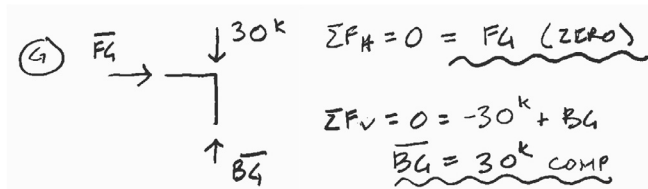 G
F̅G̅
30ᵏ
B̅G̅
ΣF_H = 0 = FG (ZERO)
ΣF_V = 0 = -30ᵏ + BG
B̅G̅ = 30ᵏ COMP